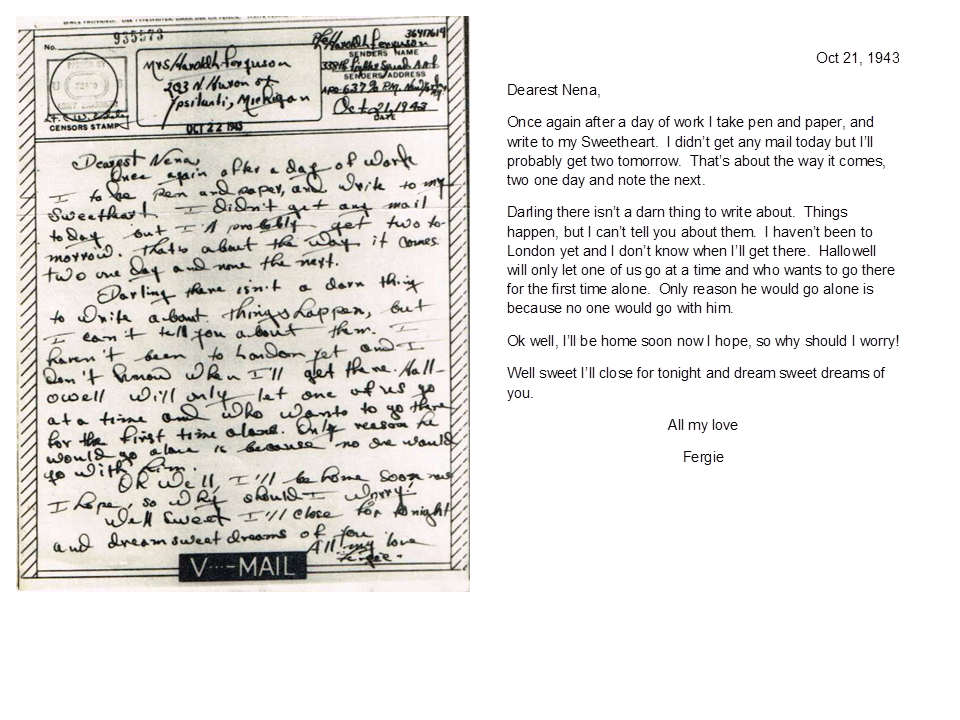 No. 935573
PASSED BY
U S
ARMY EXAMINER
CENSORS STAMP
Mrs Harold Ferguson
303 N Huron st.
Ypsilanti, Michigan
OCT 22 1943
Pfc Harold Ferguson 36417619
SENDERS NAME
SENDERS ADDRESS
APO 637
Oct 21, 1943
DATE
Dearest Nena,
Once again after a day of work
I take pen and paper, and write to my
Sweetheart. I didn't get any mail
today but I'll probably get two to-
morrow. That's about the way it comes
two one day and none the next.
Darling there isn't a darn thing
to write about. Things happen, but
I can't tell you about them. I
haven't been to London yet and I
don't know when I'll get there. Hall-
owell will only let one of us go
at a time and who wants to go there
for the first time alone. Only reason he
would go alone is because no one would
go with him.
Ok well, I'll be home soon now
I hope, so why should I worry!
Well sweet I'll close for tonight
and dream sweet dreams of you
All my love
Fergie.
V···-MAIL
Oct 21, 1943
Dearest Nena,
Once again after a day of work I take pen and paper, and
write to my Sweetheart. I didn't get any mail today but I'll
probably get two tomorrow. That's about the way it comes,
two one day and note the next.
Darling there isn't a darn thing to write about. Things
happen, but I can't tell you about them. I haven't been to
London yet and I don't know when I'll get there. Hallowell
will only let one of us go at a time and who wants to go there
for the first time alone. Only reason he would go alone is
because no one would go with him.
Ok well, I'll be home soon now I hope, so why should I worry!
Well sweet I'll close for tonight and dream sweet dreams of
you.
All my love
Fergie